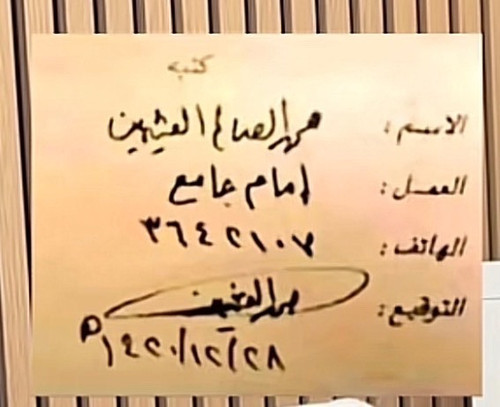 كتبه
الاسم: محمد الصالح العثيمين
العمل: امام جامع
الهاتف: ٣٦٤٢١٠٧
التوقيع: محمد العثيمين
١٤٢٠/١٢/٢٨ ه